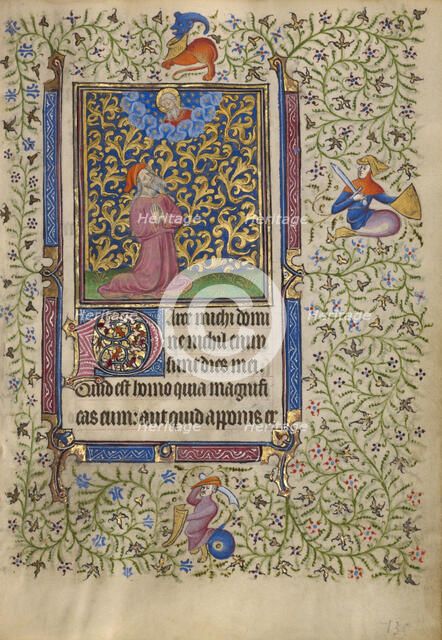 Parce michi domi
ne nichil enim
sunt dies mei.
Quid est homo quia magnifi
cas eum: aut quid apponis et
Heritage Images
Heritage Images
Heritage Images
Heritage Images